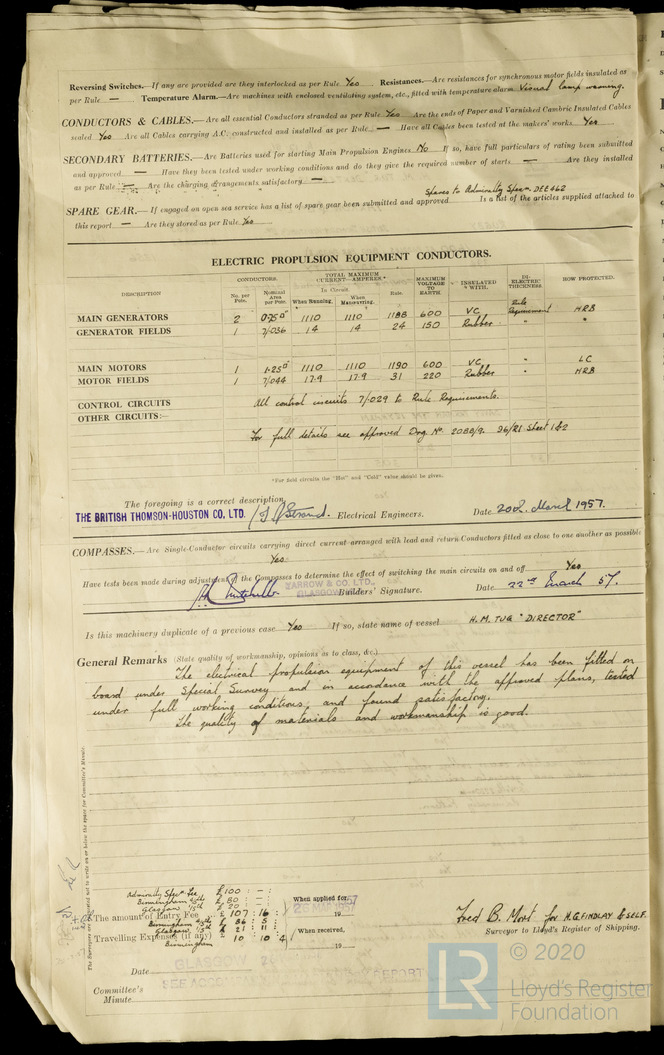 Reversing Switches.—If any are provided are they interlocked as per Rule Yes Resistances.—Are resistances for synchronous motor fields insulated as
per Rule — Temperature Alarm.—Are machines with enclosed ventilating system, etc., fitted with temperature alarm Visual lamp warning.
CONDUCTORS & CABLES.—Are all essential Conductors stranded as per Rule Yes Are the ends of Paper and Varnished Cambric Insulated Cables
sealed Yes Are all Cables carrying A.C. constructed and installed as per Rule — Have all Cables been tested at the makers' works Yes
SECONDARY BATTERIES.—Are Batteries used for starting Main Propulsion Engines No If so, have full particulars of rating been submitted
and approved — Have they been tested under working conditions and do they give the required number of starts — Are they installed
as per Rule — Are the charging arrangements satisfactory —
Spares to Admiralty Specn. DEE 462
SPARE GEAR.—If engaged on open sea service has a list of spare gear been submitted and approved Is a list of the articles supplied attached to
this report — Are they stored as per Rule Yes
ELECTRIC PROPULSION EQUIPMENT CONDUCTORS.
DESCRIPTION CONDUCTORS. TOTAL MAXIMUM CURRENT—AMPERES.* MAXIMUM VOLTAGE TO EARTH. INSULATED WITH. DI-ELECTRIC THICKNESS HOW PROTECTED.
No. per Pole. Nominal Area per Pole. In Circuit. When Running. When Manœuvring. Rule.
MAIN GENERATORS 2 0.75□" 1110 1110 1188 600 VC Rule Requirement HRB
GENERATOR FIELDS 1 7/036 14 14 24 150 Rubber " "
MAIN MOTORS 1 1.25□" 1110 1110 1190 600 VC " LC
MOTOR FIELDS 1 7/044 17.9 17.9 31 220 Rubber " HRB
CONTROL CIRCUITS All control circuits 7/029 to Rule Requirements.
OTHER CIRCUITS:—
For full details see approved Drg. No. 2088/9. 96/R1 Sheet 1&2
*For field circuits the "Hot" and "Cold" value should be given.
The foregoing is a correct description,
THE BRITISH THOMSON-HOUSTON CO. LTD. Electrical Engineers. Date 20th March 1957.
COMPASSES.—Are Single-Conductor circuits carrying direct current arranged with lead and return Conductors fitted as close to one another as possible
Yes
Have tests been made during adjustment of the Compasses to determine the effect of switching the main circuits on and off Yes
YARROW & CO. LTD.,
GLASGOW Builders' Signature. Date 22nd March 57.
Is this machinery duplicate of a previous case Yes If so, state name of vessel H.M. TUG "DIRECTOR"
General Remarks (State quality of workmanship, opinions as to class, &c.)
The electrical propulsion equipment of this vessel has been fitted on
board under Special Survey and in accordance with the approved plans, tested
under full working conditions, and found satisfactory.
The quality of materials and workmanship is good.
The Surveyors are requested not to write on or below the space for Committee's Minute.
Admiralty Specn. Fee £100 : — :
Birmingham 4/5th £ 80 — —
Glasgow 1/5th £ 20 : — :
The amount of Entry Fee £ 107 : 16 : When applied for,
Birmingham 4/5th £ 86 : 5 : 19
Glasgow 1/5th £ 21 : 11 :
Travelling Expenses (if any) £ 10 : 10 : 4 When received,
Birmingham 19
Fred B. Mort for H.G. FINDLAY & SELF.
Surveyor to Lloyd's Register of Shipping.
Date
GLASGOW
Committee's
Minute
© 2020
LR Lloyd's Register
Foundation